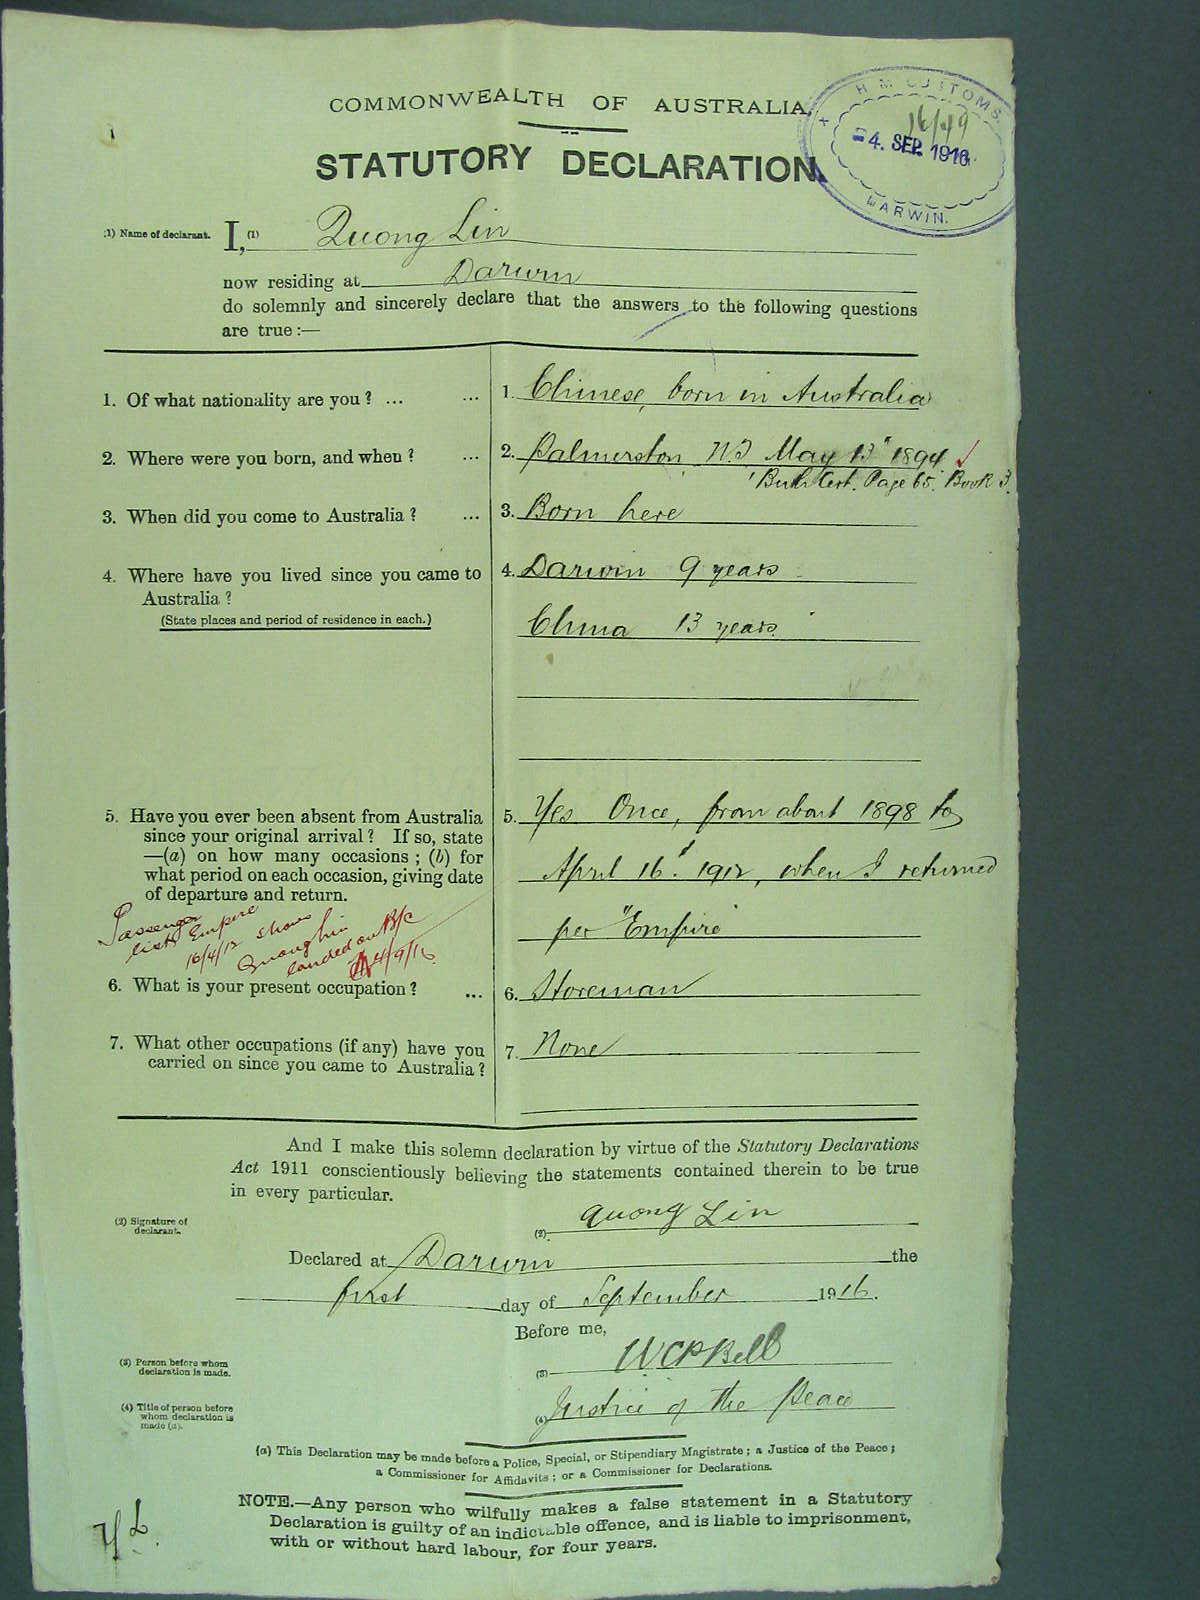 COMMONWEALTH OF AUSTRALIA.
H. M. CUSTOMS.
16/49
4. SEP. 1916
DARWIN.
STATUTORY DECLARATION.
(1) Name of declarant. I, (1) Quong Lin
now residing at Darwin
do solemnly and sincerely declare that the answers to the following questions
are true:—
1. Of what nationality are you? ... ... 1. Chinese, born in Australia
2. Where were you born, and when? ... 2. Palmerston N.T. May 13th 1894
Birth Cert. Page 65. Book 3.
3. When did you come to Australia? ... 3. Born here
4. Where have you lived since you came to 4. Darwin 9 years
Australia?
(State places and period of residence in each.) China 13 years
5. Have you ever been absent from Australia 5. Yes Once, from about 1898 to
since your original arrival? If so, state
—(a) on how many occasions; (b) for April 16th. 1912, when I returned
what period on each occasion, giving date
of departure and return. per "Empire"
Passenger
list Empire
16/4/12 shows
Quong Lin
landed on B/c
4/9/16
6. What is your present occupation? ... 6. Storeman
7. What other occupations (if any) have you 7. None
carried on since you came to Australia?
And I make this solemn declaration by virtue of the Statutory Declarations
Act 1911 conscientiously believing the statements contained therein to be true
in every particular.
(2) Signature of
declarant.
(2) Quong Lin
Declared at Darwin the
first day of September 1916.
Before me,
(3) Person before whom
declaration is made.
(3) WCPBell
(4) Title of person before
whom declaration is
made (a).
(4) Justice of the Peace
(a) This Declaration may be made before a Police, Special, or Stipendiary Magistrate; a Justice of the Peace;
a Commissioner for Affidavits; or a Commissioner for Declarations.
NOTE.—Any person who wilfully makes a false statement in a Statutory
Declaration is guilty of an indictable offence, and is liable to imprisonment,
with or without hard labour, for four years.